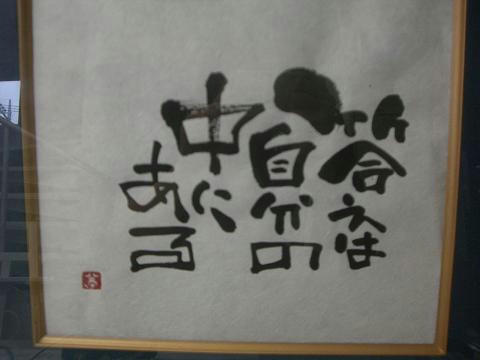 答えは
自分の
中に
ある